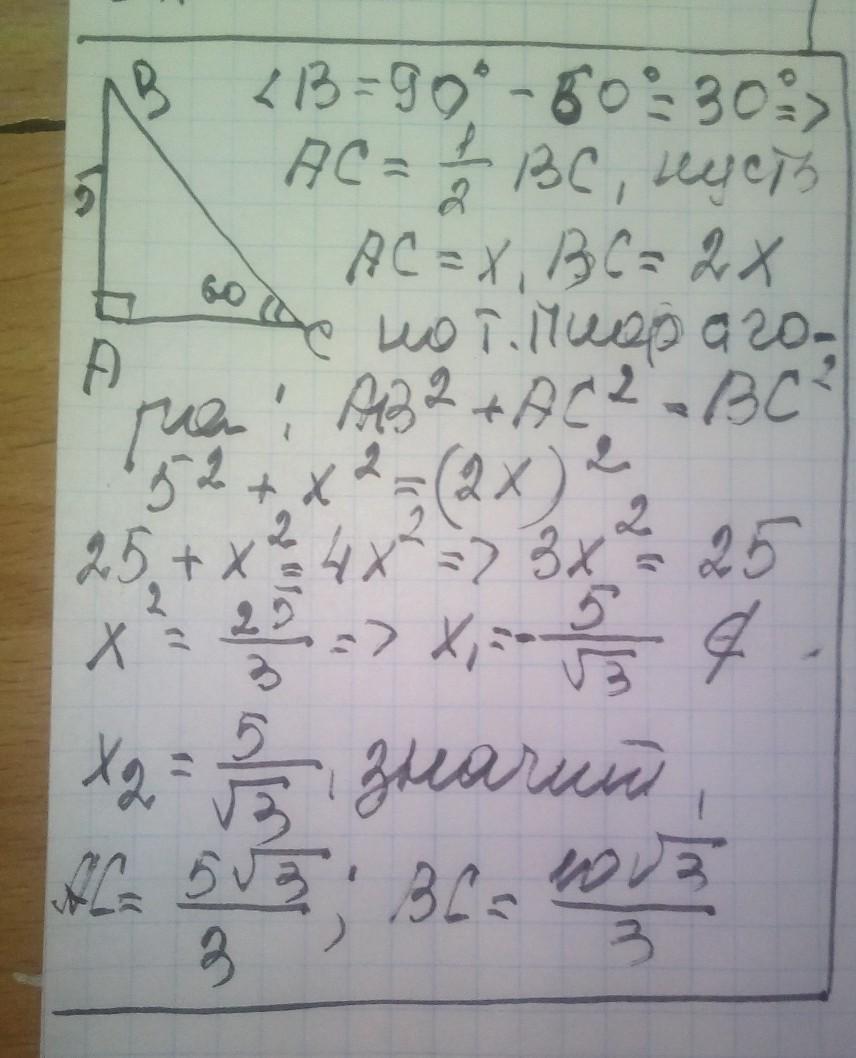 B ∠B = 90° - 60° = 30° =>
5 AC = 1/2 BC, пусть
AC = x, BC = 2x
60
A C по т. Пифаго-
ра: AB² + AC² = BC²
5² + x² = (2x)²
25 + x² = 4x² => 3x² = 25
x² = 25/3 => x₁ = -5/√3 ∉
x₂ = 5/√3, значит,
AC = 5√3/3; BC = 10√3/3